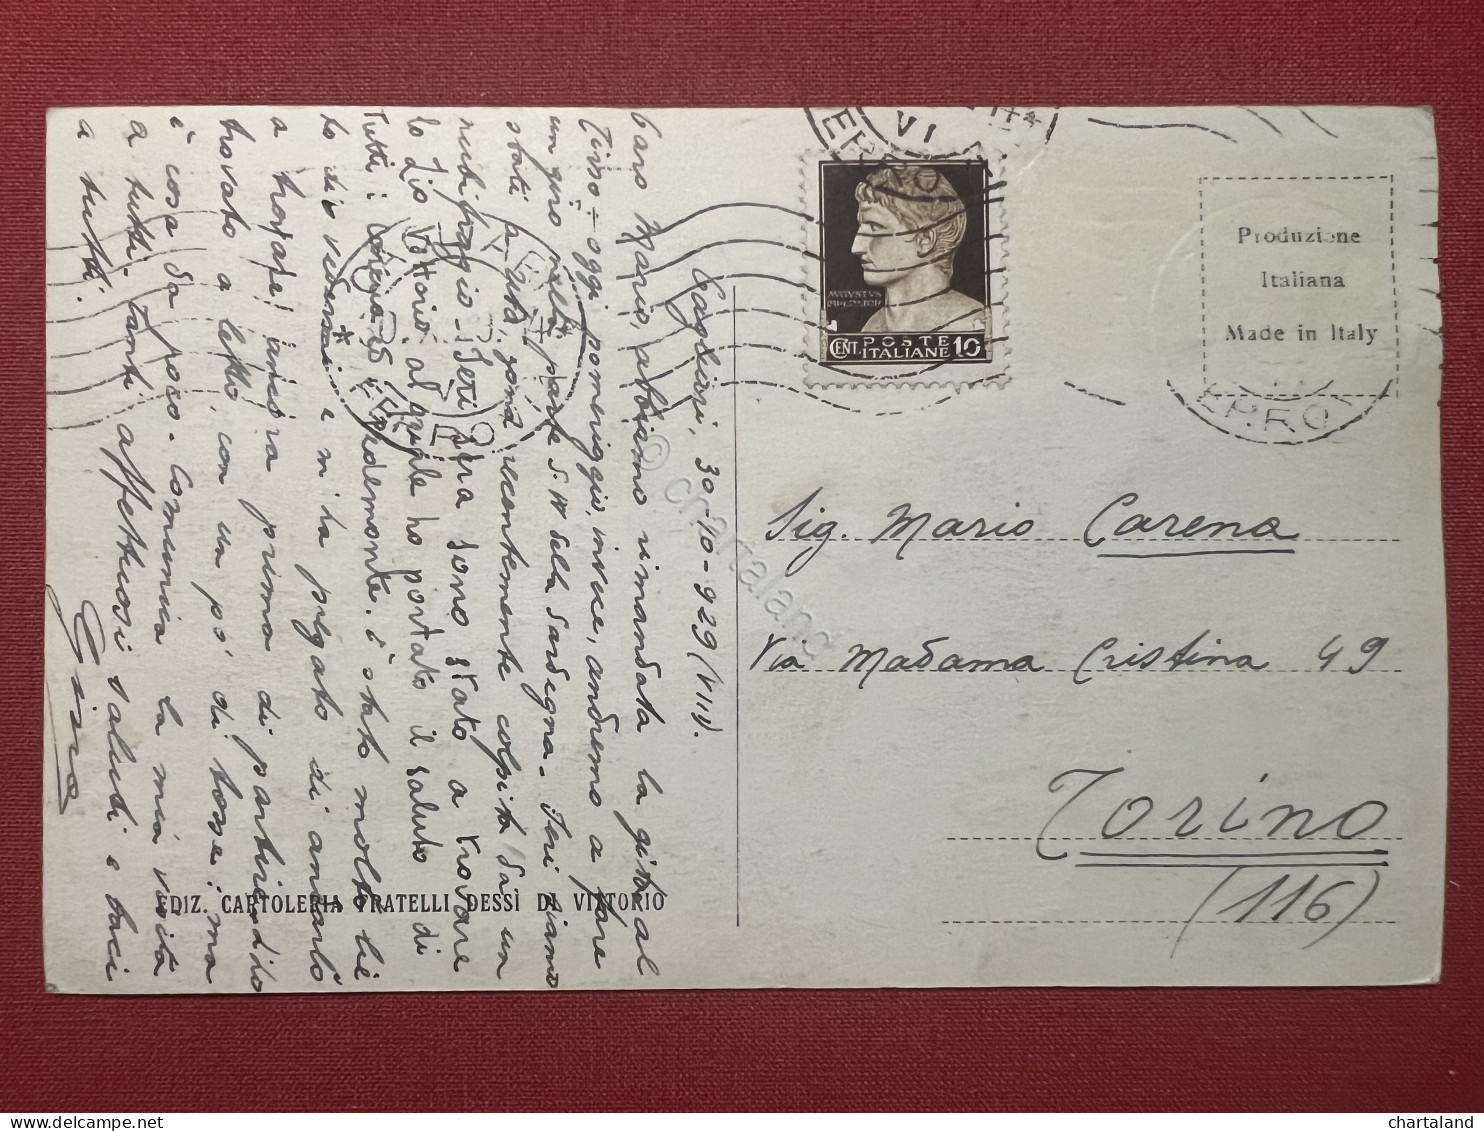 Cagliari, 30-10-929 (VIII).
Caro Mario, abbiamo rimandata la gita al
Tirso - oggi pomeriggio, invece, andremo a fare
un giro nella parte S.W della Sardegna. Ieri siamo
stati a zona recentemente colpita da un
nubifragio. Ieri sera sono stato a trovare
lo Zio Vittorio al quale ho portato il saluto di
Tutti i Piedemonte. è stato molto lie
to di vedermi e m'ha pregato di andarlo
a trovare ancora prima di partire. L'ho
trovato a letto, con un pò di tosse: ma
è cosa da poco. Comunica la mia visita
a tutti. Tanti affettuosi saluti e baci
a tutti.
Gino
EDIZ. CARTOLERIA FRATELLI DESSÌ DI VITTORIO
VI
FERRO
POSTE
CENT. ITALIANE 10
Produzione
Italiana
Made in Italy
FERRO
Sig. Mario Carena
Via Madama Cristina 49
Torino
(116)
© chartaland
chartaland